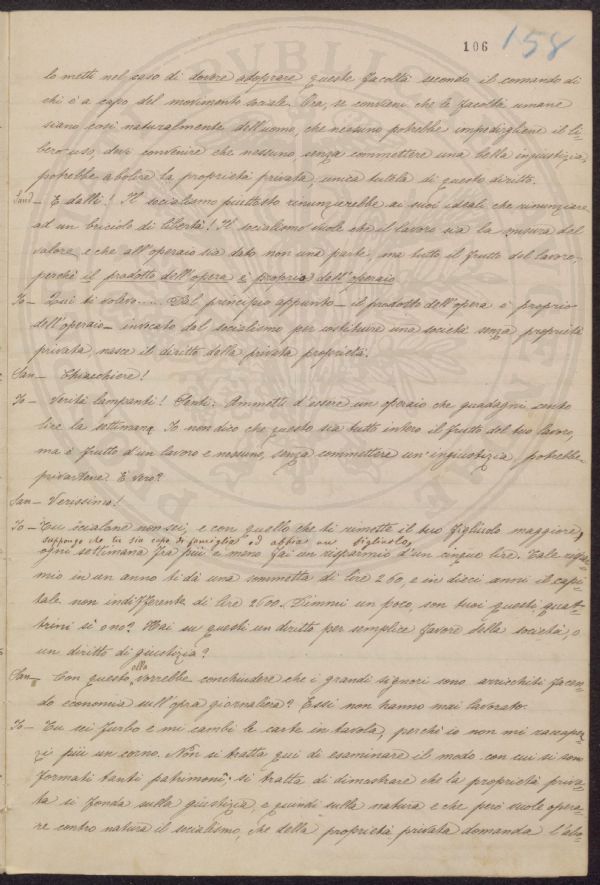 106 158
lo metti nel caso di dovere adoprare queste facoltà secondo il comando di
chi è a capo del movimento sociale. Ora, se convieni che le facoltà umane
siano così naturalmente dell'uomo, che nessuno potrebbe impedirgliene il li-
bero uso, devi convenire che nessuno, senza commettere una bella ingiustizia,
potrebbe abolire la proprietà privata, unica tutela di questo diritto.
San_ E dalli! Il socialismo piuttosto rinunzierebbe ai suoi ideali che rinunziare
ad un briciolo di libertà! Il socialismo vuole che il lavoro sia la misura del
valore, e che all'operaio sia dato non una parte, ma tutto il frutto del lavoro,
perchè il prodotto dell'opera è proprio dell'operaio
Io_ Qui ti volevo..... Dal principio appunto _ il prodotto dell'opera è proprio
dell'operaio _ invocato dal socialismo per costituire una società senza proprietà
privata, nasce il diritto della privata proprietà.
San_ Chiacchiere!
Io_ Verità lampanti! Senti. Ammetti d'essere un operaio che guadagni cento
lire la settimana. Io non dico che questo sia tutto intero il frutto del tuo lavoro,
ma è frutto d'un lavoro e nessuno, senza commettere un'ingiustizia, potrebbe
privartene. È vero?
San_ Verissimo!
Io_ Tu scialone non sei, e con quello che ti rimette il tuo figliuolo maggiore,
suppongo che tu sia capo di famiglia ed abbia un figliuolo,
ogni settimana fra più e meno fai un risparmio d'un cinque lire. Tale rispar-
mio in un anno ti dà una sommetta di lire 260, e in dieci anni il capi-
tale non indifferente di lire 2600. Dimmi un poco, son tuoi questi quat-
trini sì o no? Hai su questi un diritto per semplice favore della società, o
un diritto di giustizia?
San_ Con questo ella vorrebbe conchiudere che i grandi signori sono arricchiti facen-
do economia sull'opra giornaliera? Essi non hanno mai lavorato.
Io_ Tu sei furbo e mi cambi le carte in tavola, perchè io non mi raccapez-
zi più un corno. Non si tratta qui di esaminare il modo con cui si son
formati tanti patrimoni; si tratta di dimostrare che la proprietà priva-
ta si fonda sulla giustizia e quindi sulla natura e che però vuole opera-
re contro natura il socialismo, che della proprietà privata domanda l'abo-